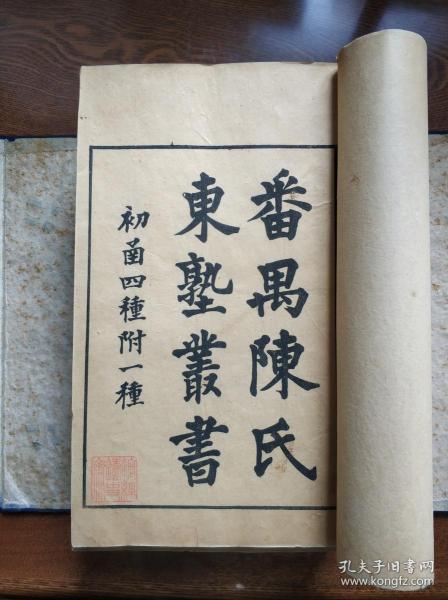 番禺陳氏
東塾叢書
初函四種附一種
孔夫子旧书网
www.kongfz.com